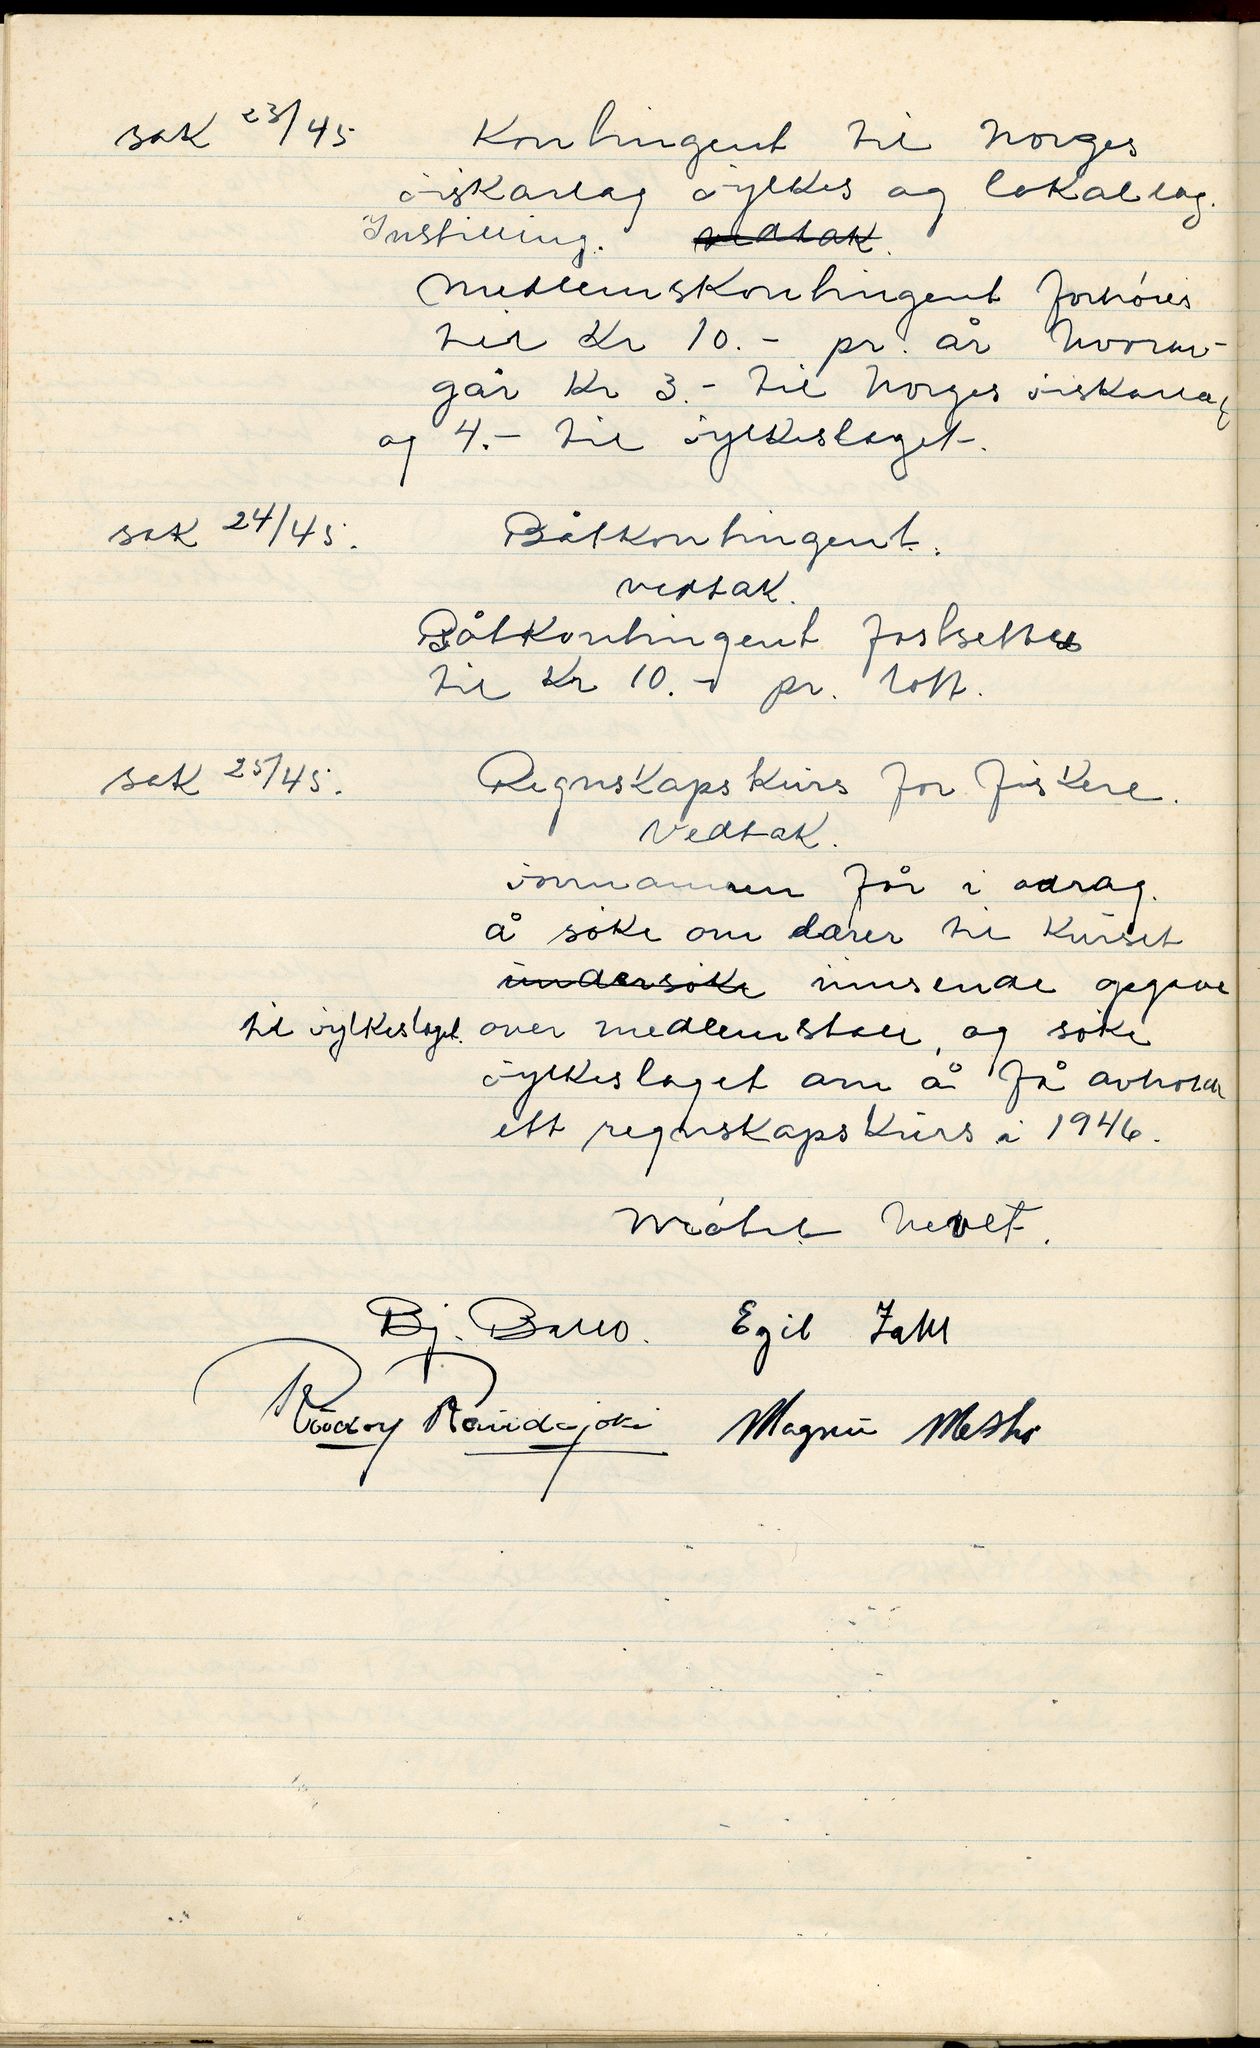 sak 23/45 Kontingent til Norges
fiskarlag fylkes og lokallag.
Instilling. vedtak.
Medlemskontingent forhöies
til Kr 10.- pr. år hvorav
går Kr 3.- til Norges fiskarlag
og 4.- til fylkeslaget.
sak 24/45. Båtkontingent.
vedtak.
Båtkontingent fastsettes
til Kr 10.- pr. lott.
sak 25/45. Regnskapskurs for fiskere.
Vedtak.
formannen får i odrag.
å söke om lærer til kurset
undersöke innsende opgave
til fylkeslaget. over medlemstall, og söke
fylkeslaget om å få avholdt
ett regnskapskurs i 1946.
Mötet hevet.
Bj. Ballo. Egil Zahl
Magnu